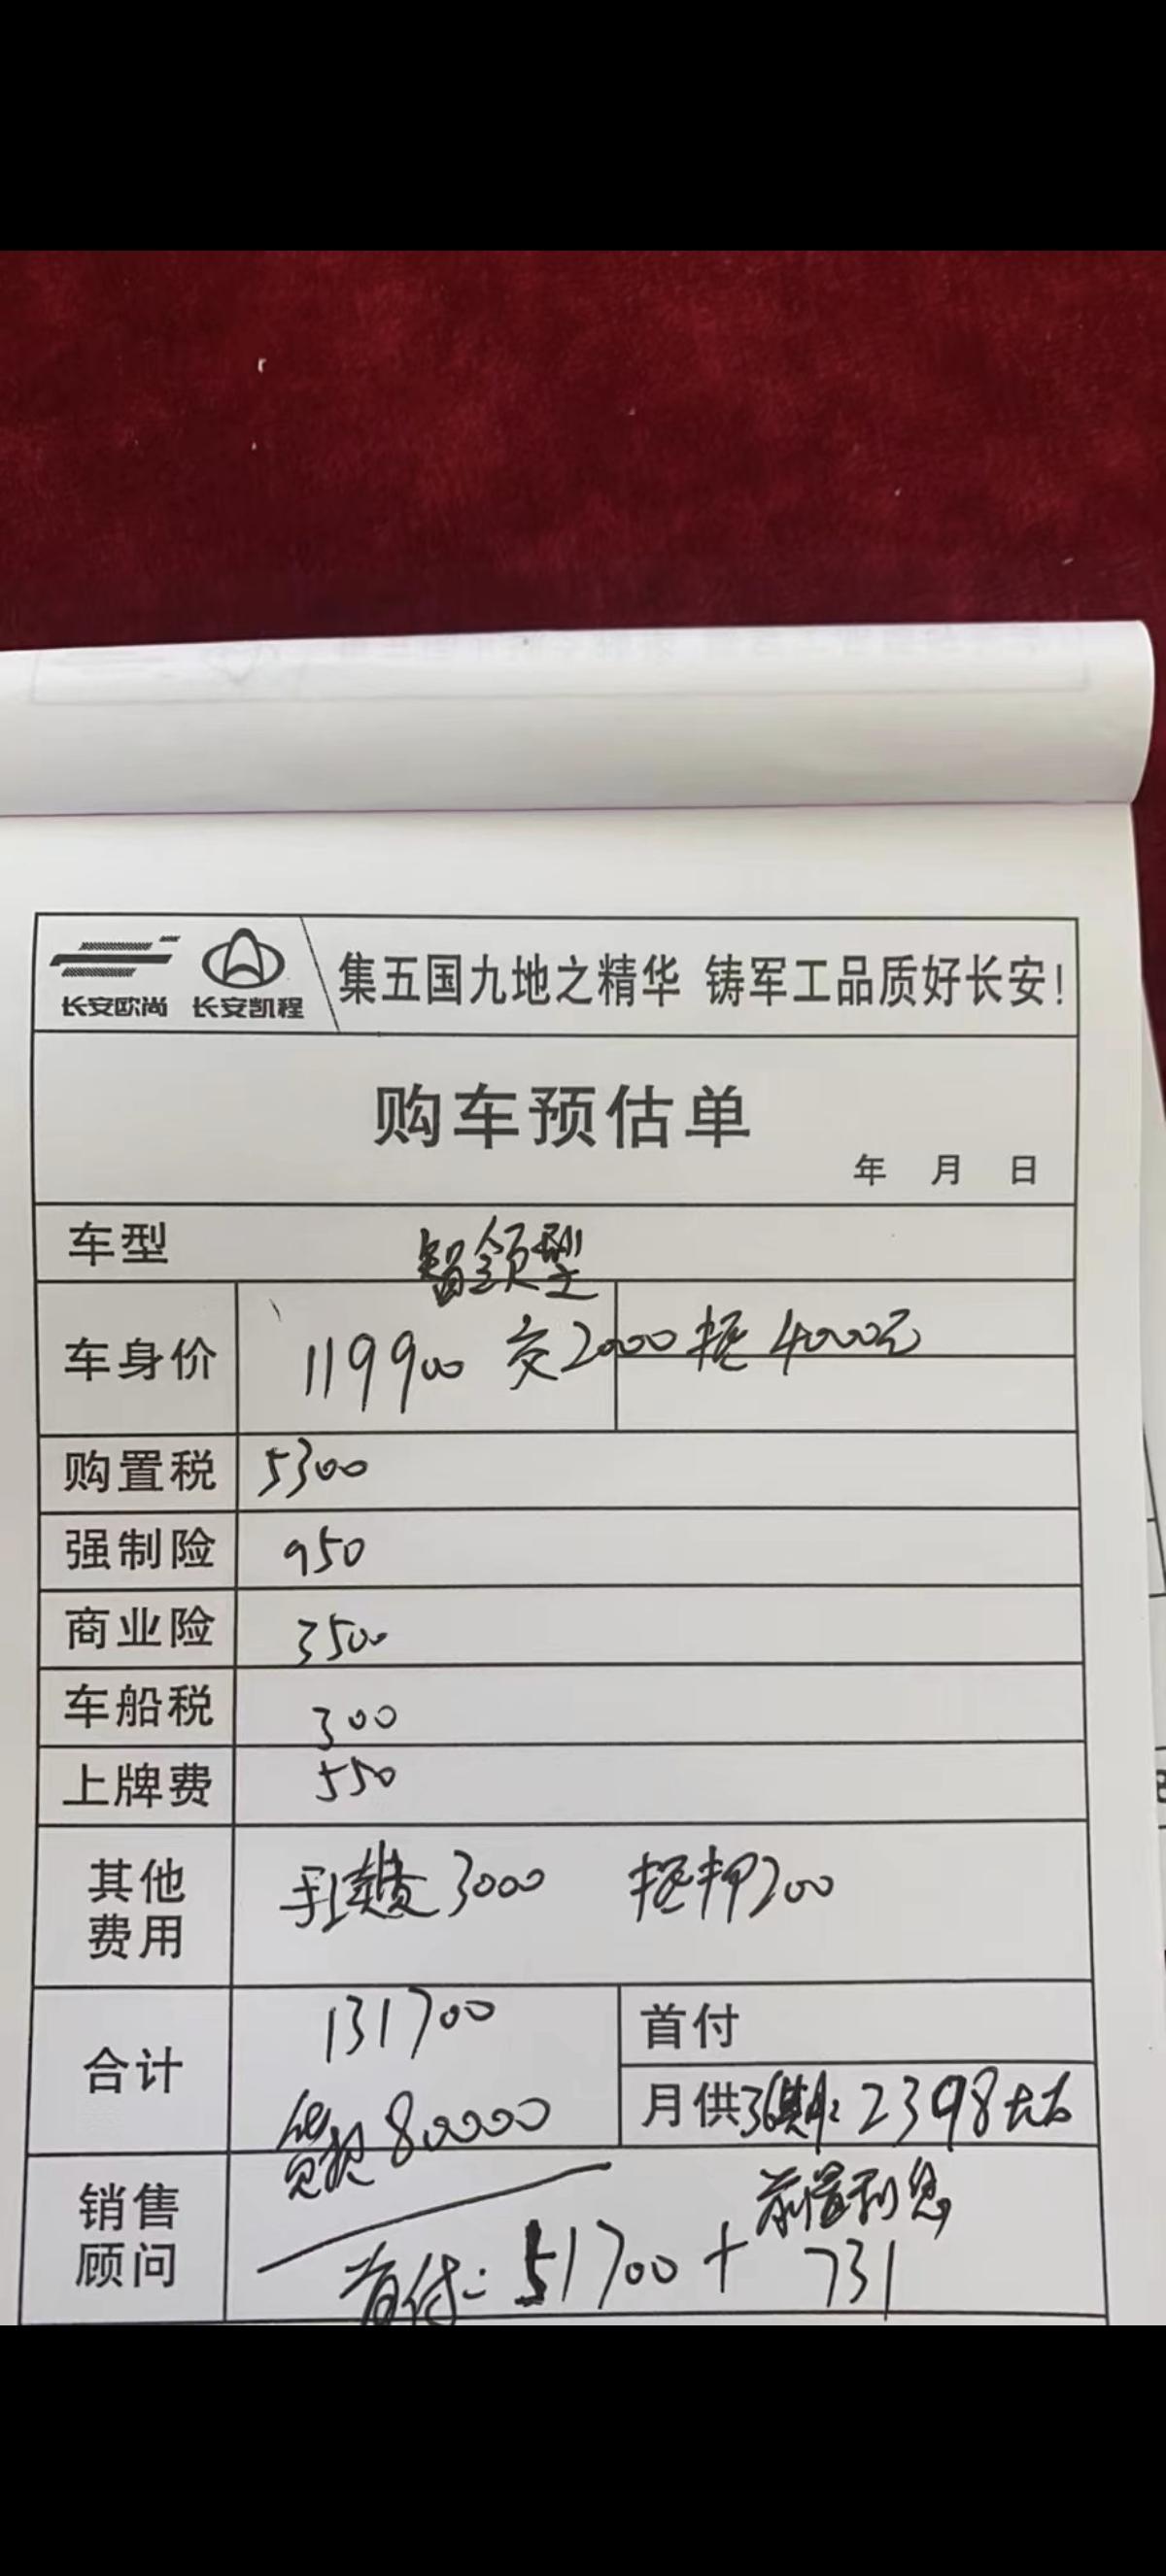 长安欧尚 长安凯程 集五国九地之精华 铸军工品质好长安!
购车预估单
年 月 日
车型 智领型
车身价 119900 交2000抵4000元
购置税 5300
强制险 950
商业险 3500
车船税 300
上牌费 550
其他费用 手续费3000 抵押200
合计 131700
贷款80000
首付
月供 36期 2398左右
销售顾问
首付: 51700 + 前置利息 731